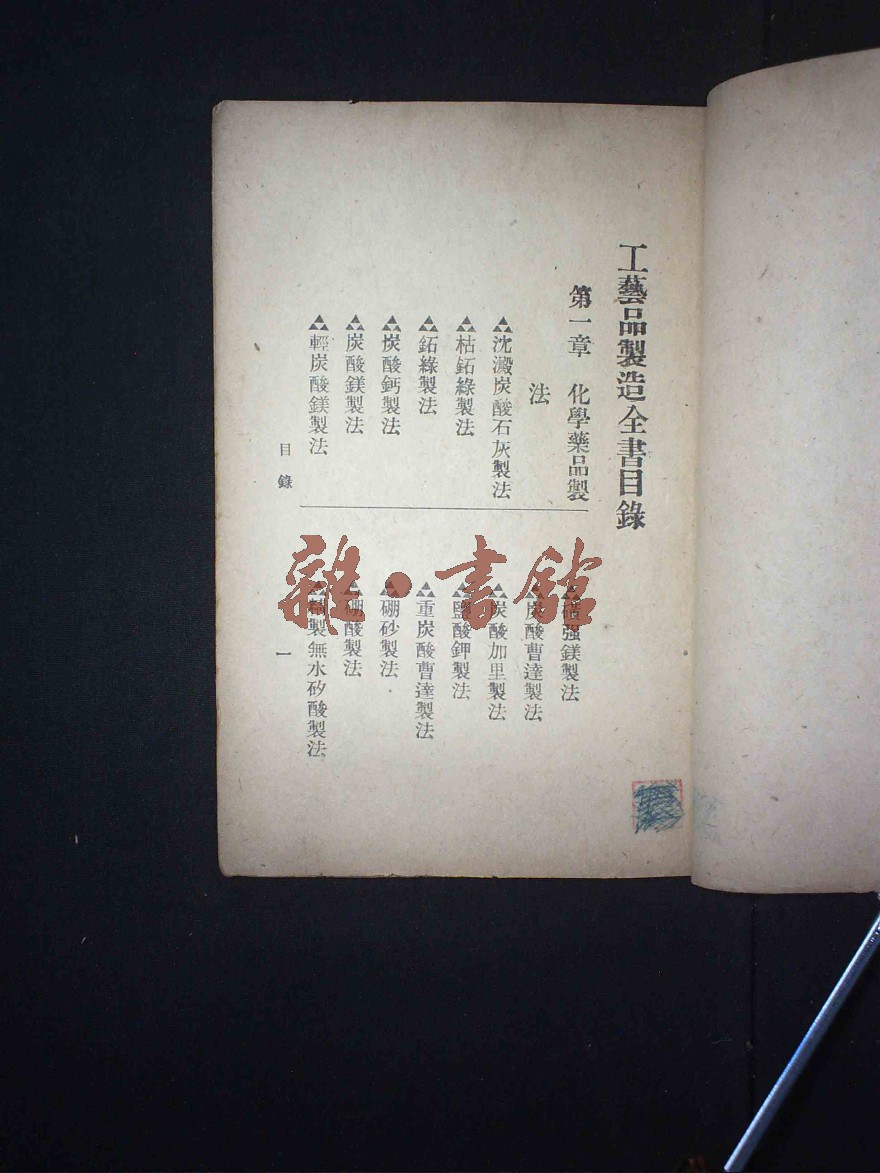 工藝品製造全書目錄
第一章 化學藥品製
法
沈澱炭酸石灰製法
枯鉐綠製法
鉐綠製法
炭酸鈣製法
炭酸鎂製法
輕炭酸鎂製法
强鎂製法
炭酸曹達製法
炭酸加里製法
鹽酸鉀製法
重炭酸曹達製法
硼砂製法
硼酸製法
精製無水矽酸製法
目錄
一
雜·書館